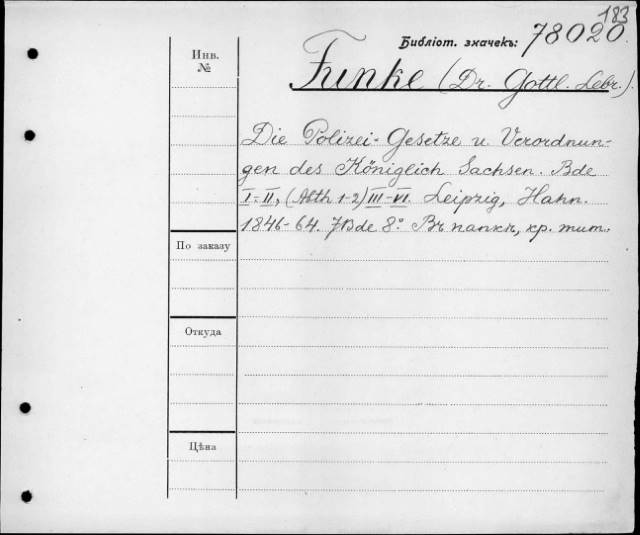 183
Библіот. значекъ: 78020.
Инв.
№
Funke (Dr. Gottl. Lebr.).
Die Polizei-Gesetze u. Verordnun-
gen des Königlich Sachsen. Bde
I-II, (Abth 1-2) III-VI. Leipzig, Hahn.
1846-64. 7Bde 8.° Въ папкѣ, кр. тит.
По заказу
Откуда
Цѣна